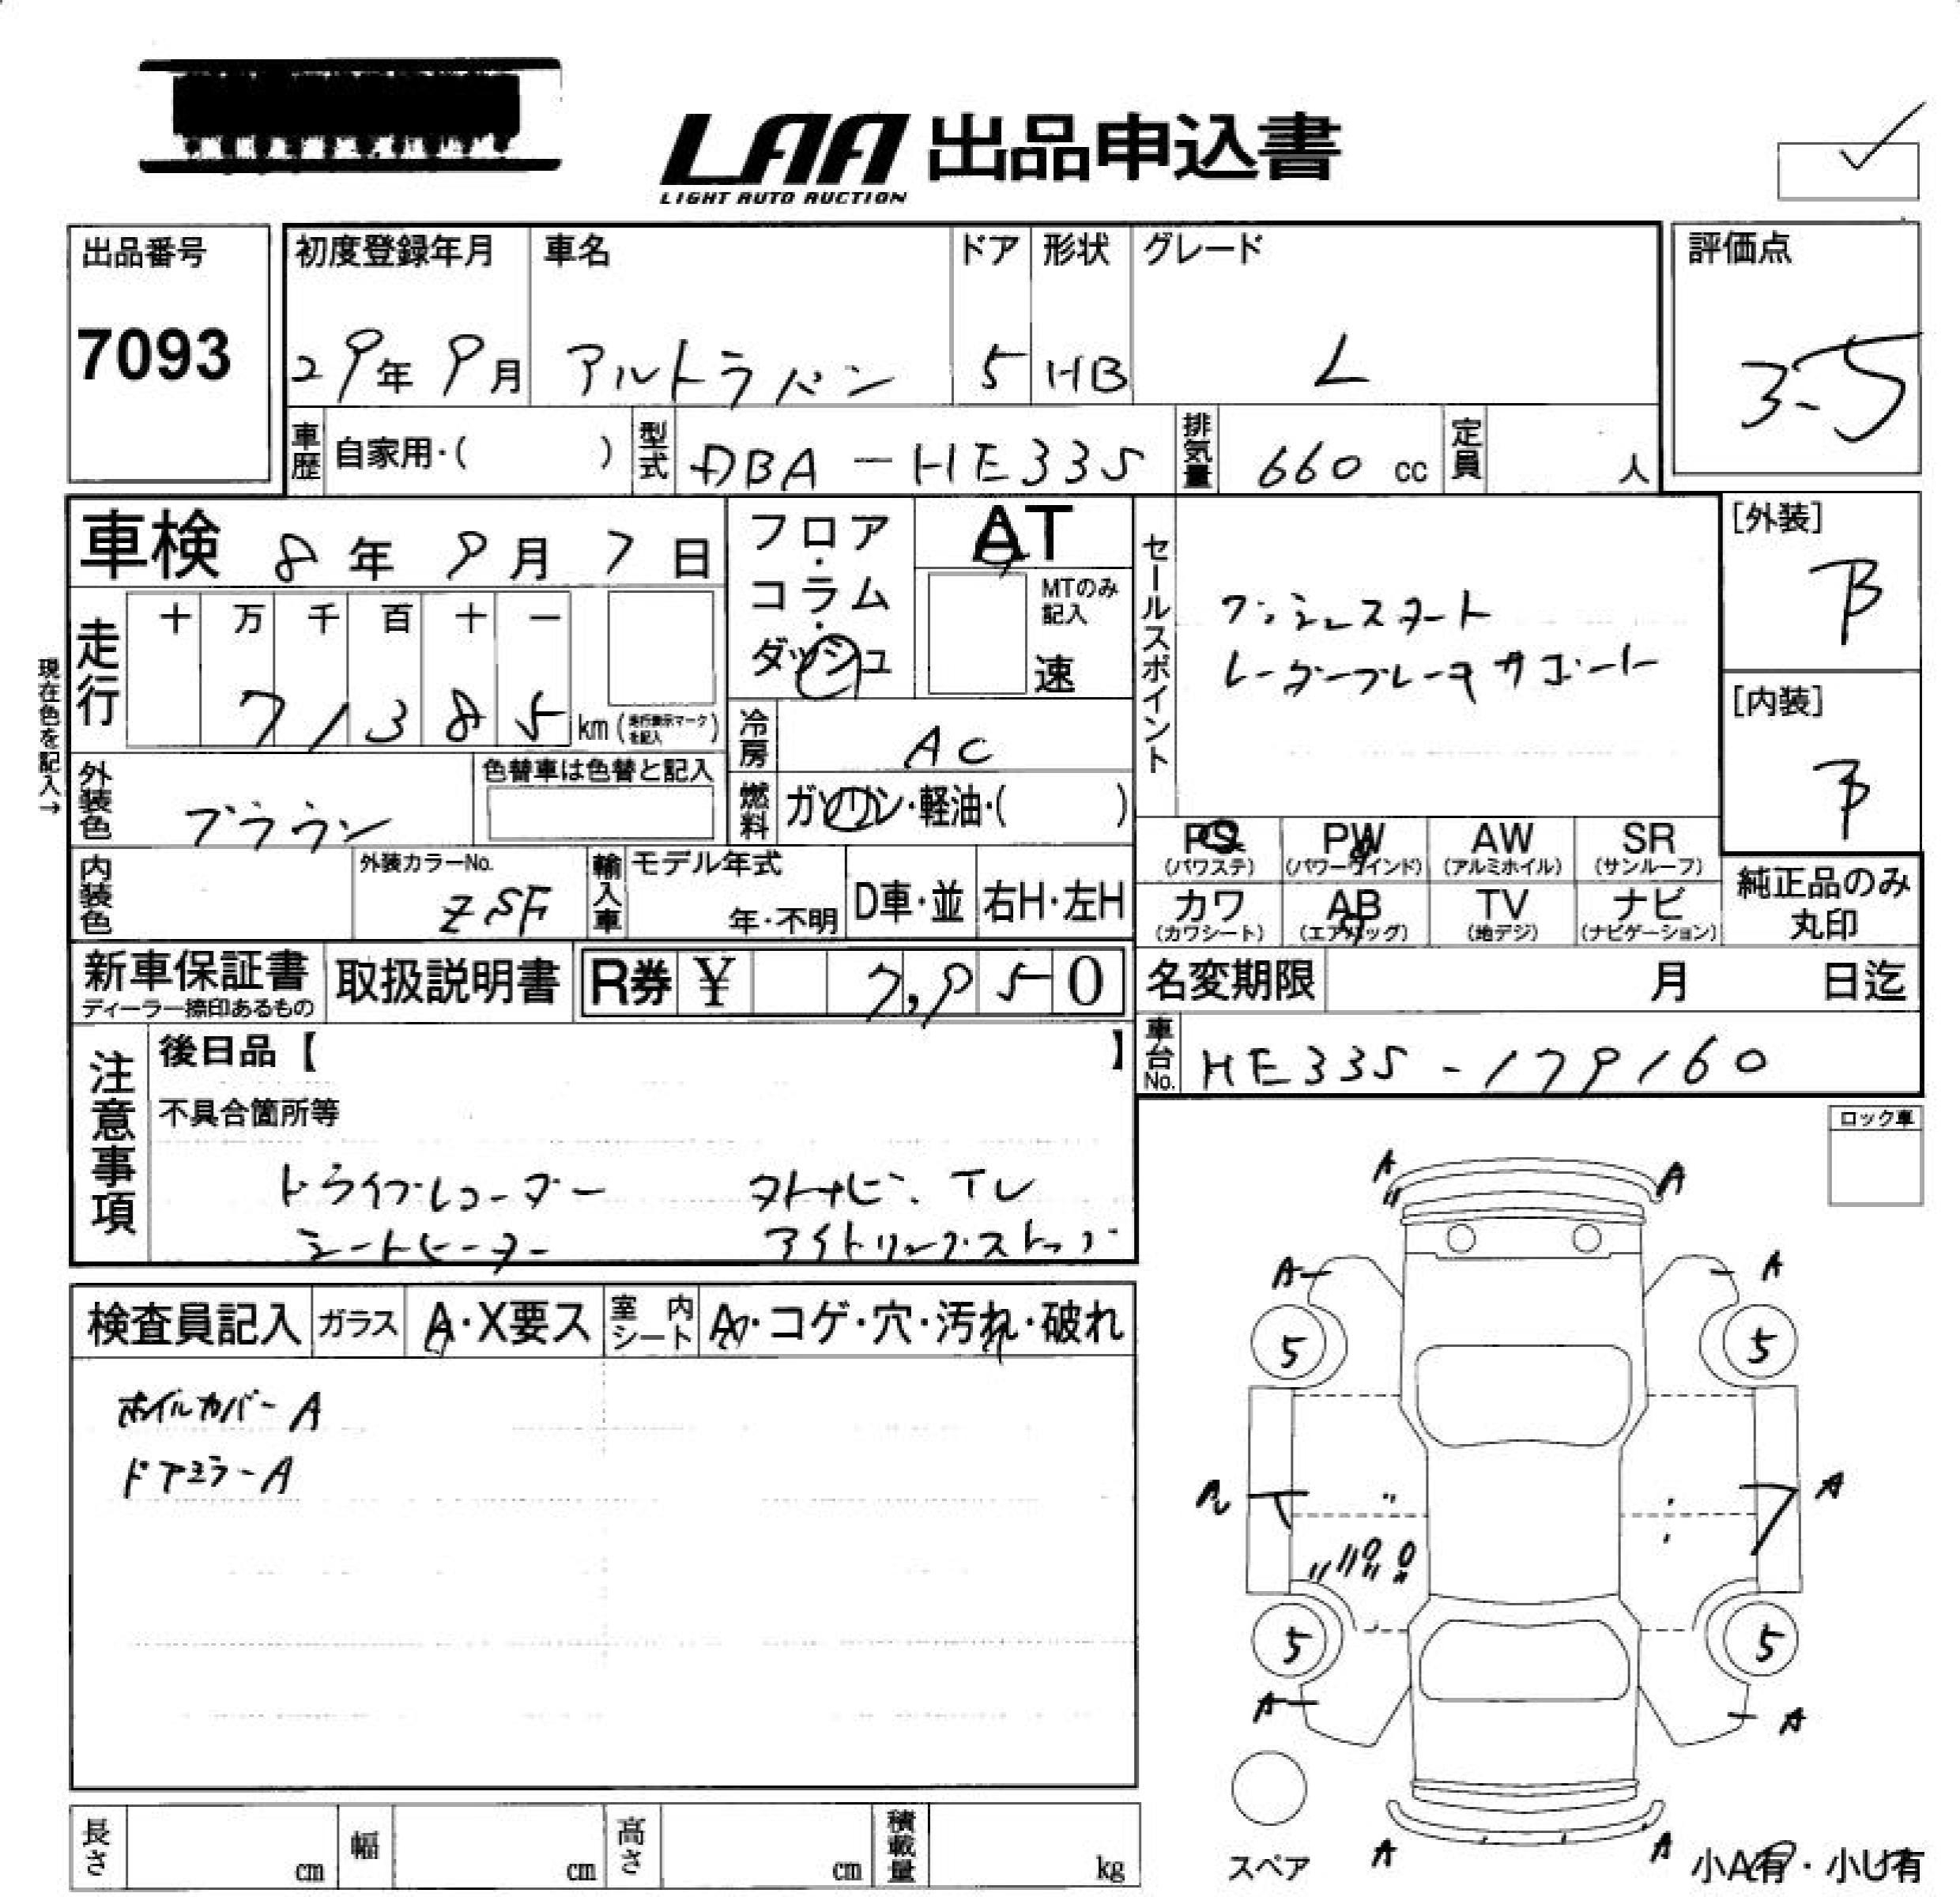 LAA 出品申込書
LIGHT AUTO AUCTION
出品番号
7093
初度登録年月
29年 9月
車名
アルトラパン
ドア
5
形状
HB
グレード
L
評価点
3.5
車歴 自家用・( )
型式 DBA-HE33S
排気量 660 cc
定員 人
車検 8年 9月 7日
フロア・コラム・ダッシュ
AT
MTのみ記入
速
セールスポイント
プッシュスタート
レーダーブレーキサポート
[外装]
B
[内装]
B
現在色を記入→
走行
十 万 千 百 十 一
71385 km (走行表示マークを記入)
冷房 AC
燃料 ガソリン・軽油・( )
外装色 ブラウン
色替車は色替と記入
内装色
外装カラーNo.
ZSF
輸入車 モデル年式
年・不明
D車・並
右H・左H
PS (パワステ)
PW (パワーウインド)
AW (アルミホイル)
SR (サンルーフ)
カワ (カワシート)
AB (エアバッグ)
TV (地デジ)
ナビ (ナビゲーション)
純正品のみ
丸印
新車保証書
ディーラー捺印あるもの
取扱説明書
R券 ¥ 7,950
名変期限 月 日迄
車台No. HE33S-179160
注意事項
後日品【 】
不具合箇所等
ドライブレコーダー
シートヒーター
アイドリングストップ
ロック車
検査員記入
ガラス A・X要ス
室内シート A・コゲ・穴・汚れ・破れ
ホイルカバーA
ドアミラーA
A A
A A
5 5
A
5 5
A A
A A
スペア
小A有・小U有
長さ cm
幅 cm
高さ cm
積載量 kg